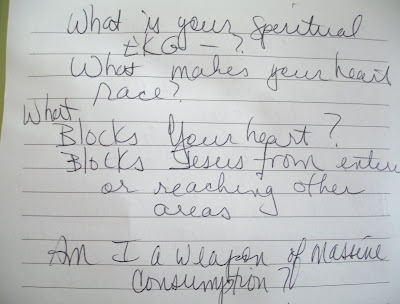 What is your Speritual
EKG - ?
What makes your heart
race?
What
Blocks Your heart?
Blocks Jesus from enter
or reaching other
areas
Am I a weapon of massive
Consumption?